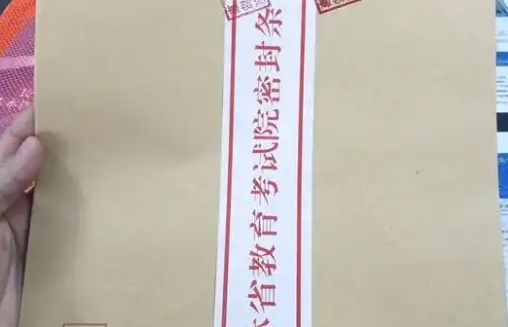 省教育考试院密封条